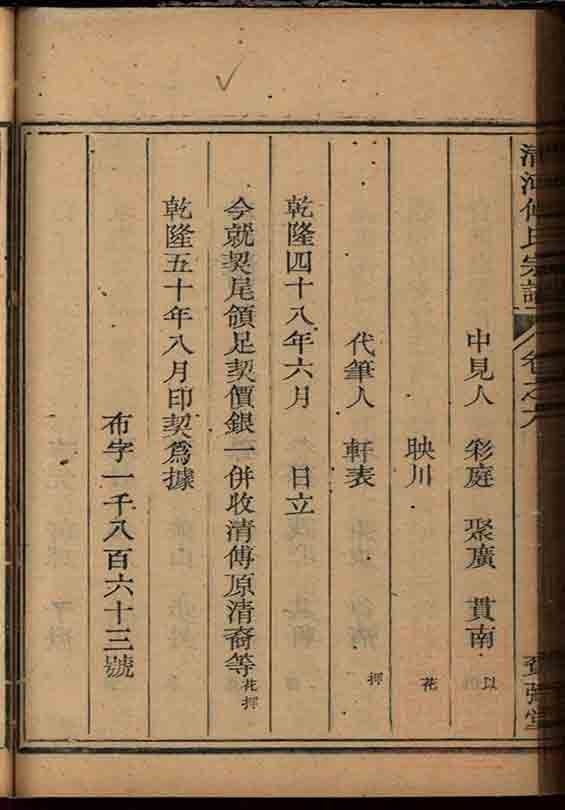 清河傅氏宗譜 卷之九
中見人 彩庭 聚廣 貫南 以
映川 花
代筆人 軒表 押
乾隆四十八年六月 日立
今就契尾領足契價銀一併收清傅原清裔等花押
乾隆五十年八月印契爲據
布字一千八百六十三號